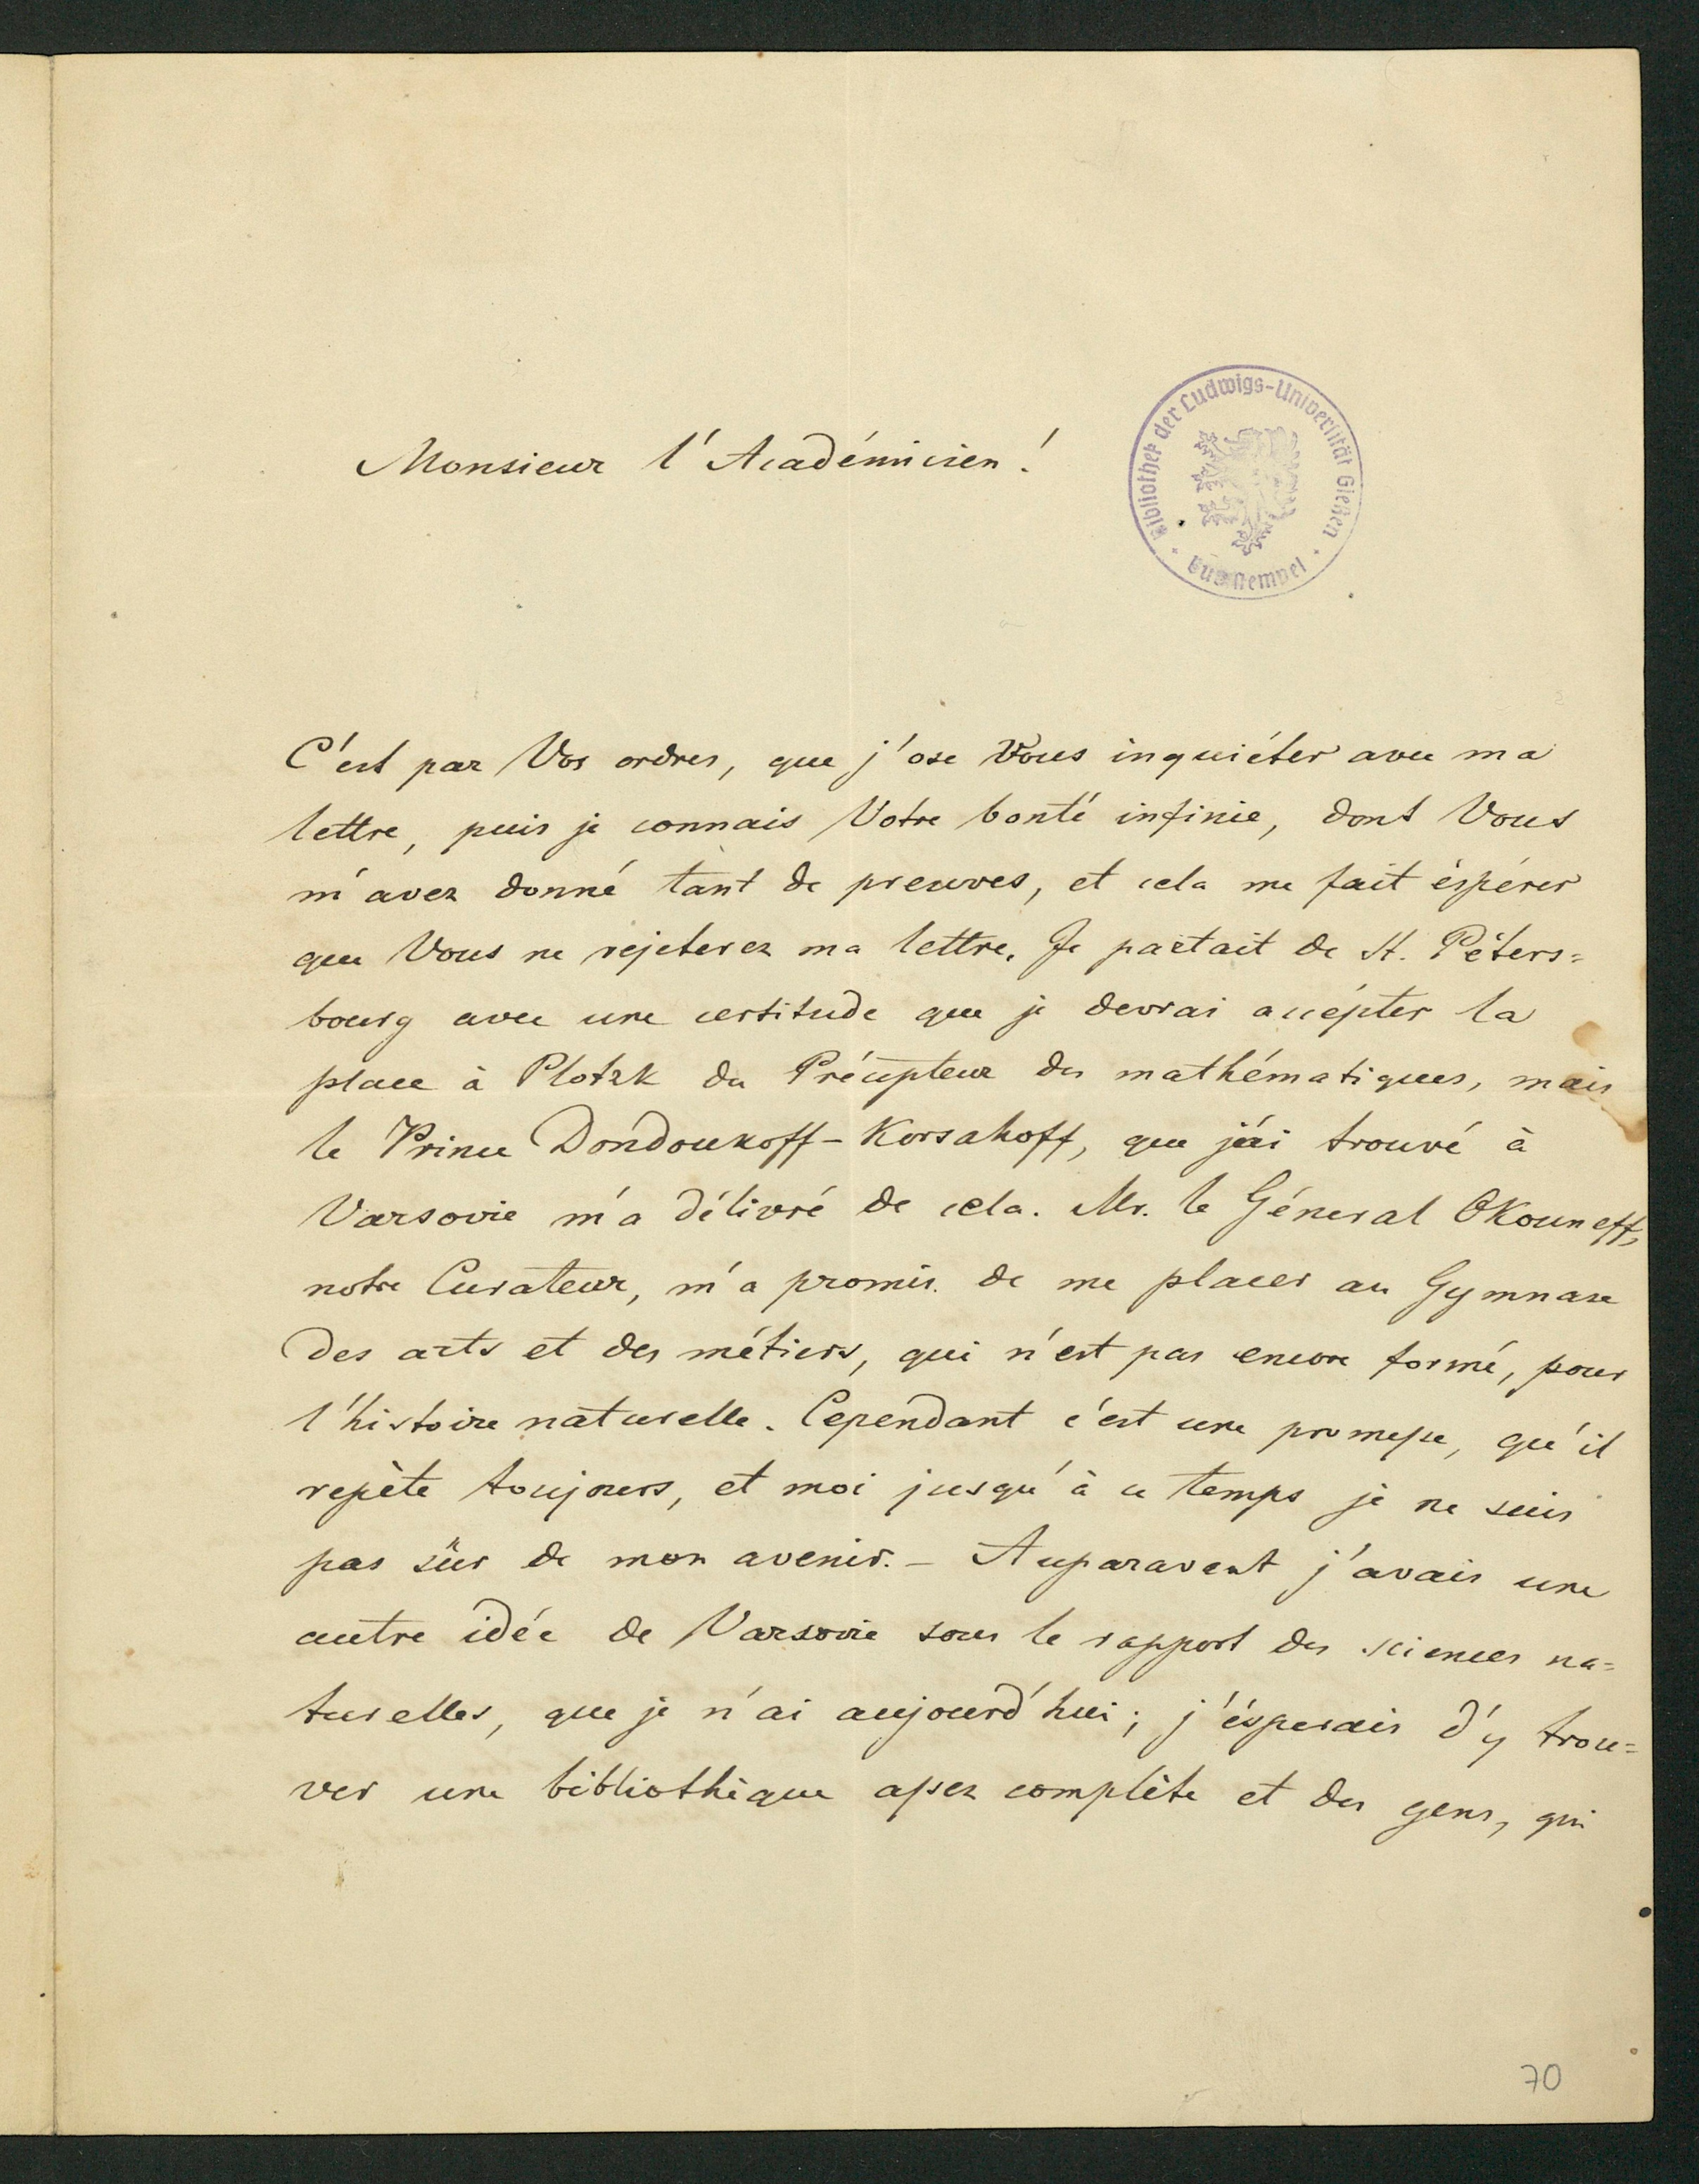 Monsieur l'Académicien!
Bibliothek der Ludwigs-Universität Gießen
C'est par Vos ordres, que j'ose Vous inquiéter avec ma
lettre, puis je connais Votre bonté infinie, dont Vous
m'avez donné tant de preuves, et cela me fait éspérer
que Vous ne rejeterez ma lettre. Je partait de St. Péters=
bourg avec une certitude que je devrai accépter la
place à Plotzk du Précepteur des mathématiques, mais
le Prince Dondoukoff-Korsakoff, que j'ai trouvé à
Varsovie m'a délivré de cela. Mr. le Géneral Okouneff,
notre Curateur, m'a promis de me placer au Gymnase
des arts et des métiers, qui n'est pas encore formé, pour
l'histoire naturelle. Cependant c'est une promesse, qu'il
repète toujours, et moi jusqu'à ce temps je ne suis
pas sûr de mon avenir. – Auparavant j'avais une
autre idée de Varsovie sous le rapport des sciences na=
turelles, que je n'ai aujourd'hui; j'ésperais d'y trou=
ver une bibliothèque assez complète et des gens, qui
70